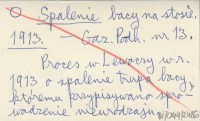 O Spalenie bacy na stosie.
1913. — Gaz. Podh. nr 13.
Proces w Lewoczy w r.
1913 o spalenie trupa bacy,
któremu przypisywano spro-
wadzenie nieurodzaju.